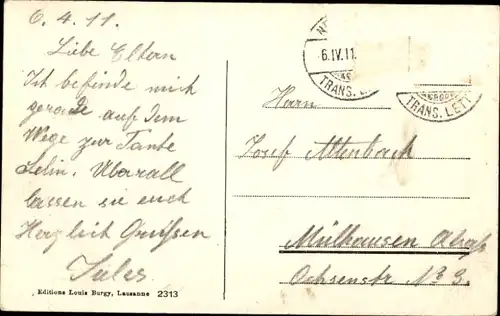 6.4.11.
Liebe Eltern
Ich befinde mich
gerade auf dem
Wege zur Tante
Selin. Uberall
lassen sie euch
Herzlich Grüssen
Jules
Editions Louis Burgy, Lausanne 2313
6.IV.11.
TRANS. LETT
TRANS. LETT
Herrn
Josef Altenbach
Mülhausen Elsass
Ochsenstr. No 3.